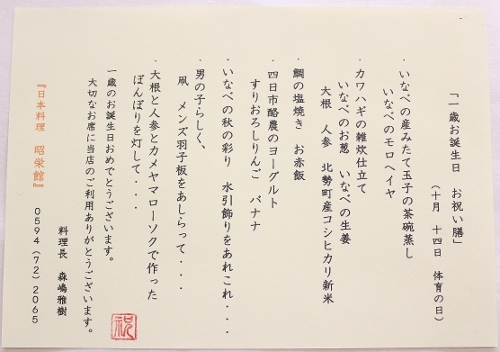 「一歳お誕生日　お祝い膳」
（十月　十四日　体育の日）
・いなべの産みたて玉子の茶碗蒸し
いなべのモロヘイヤ
・カワハギの雑炊仕立て
いなべのお葱　いなべの生姜
大根　人参　北勢町産コシヒカリ新米
・鯛の塩焼き　お赤飯
・四日市酪農のヨーグルト
すりおろしりんご　バナナ
・いなべの秋の彩り　水引飾りをあれこれ・・・
・男の子らしく、
凧　メンズ羽子板をあしらって・・・
・大根と人参とカメヤマローソクで作った
ぼんぼりを灯して・・・
一歳のお誕生日おめでとうございます。
大切なお席に当店のご利用ありがとうございます。
料理長　森嶋雅樹
『日本料理　昭栄館』
０５９４（７２）２０６５
祝